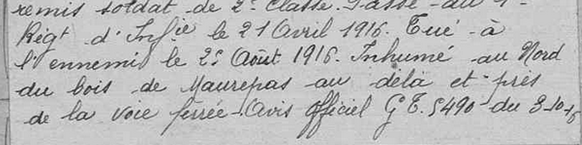 remis soldat de 2e classe. Passé au
Régt d'Infie le 21 Avril 1916. Tué à
l'ennemi le 25 Août 1916. Inhumé au Nord
du bois de Maurepas au delà et près
de la voie ferrée - Avis officiel G T. 5490 du 3-10-16